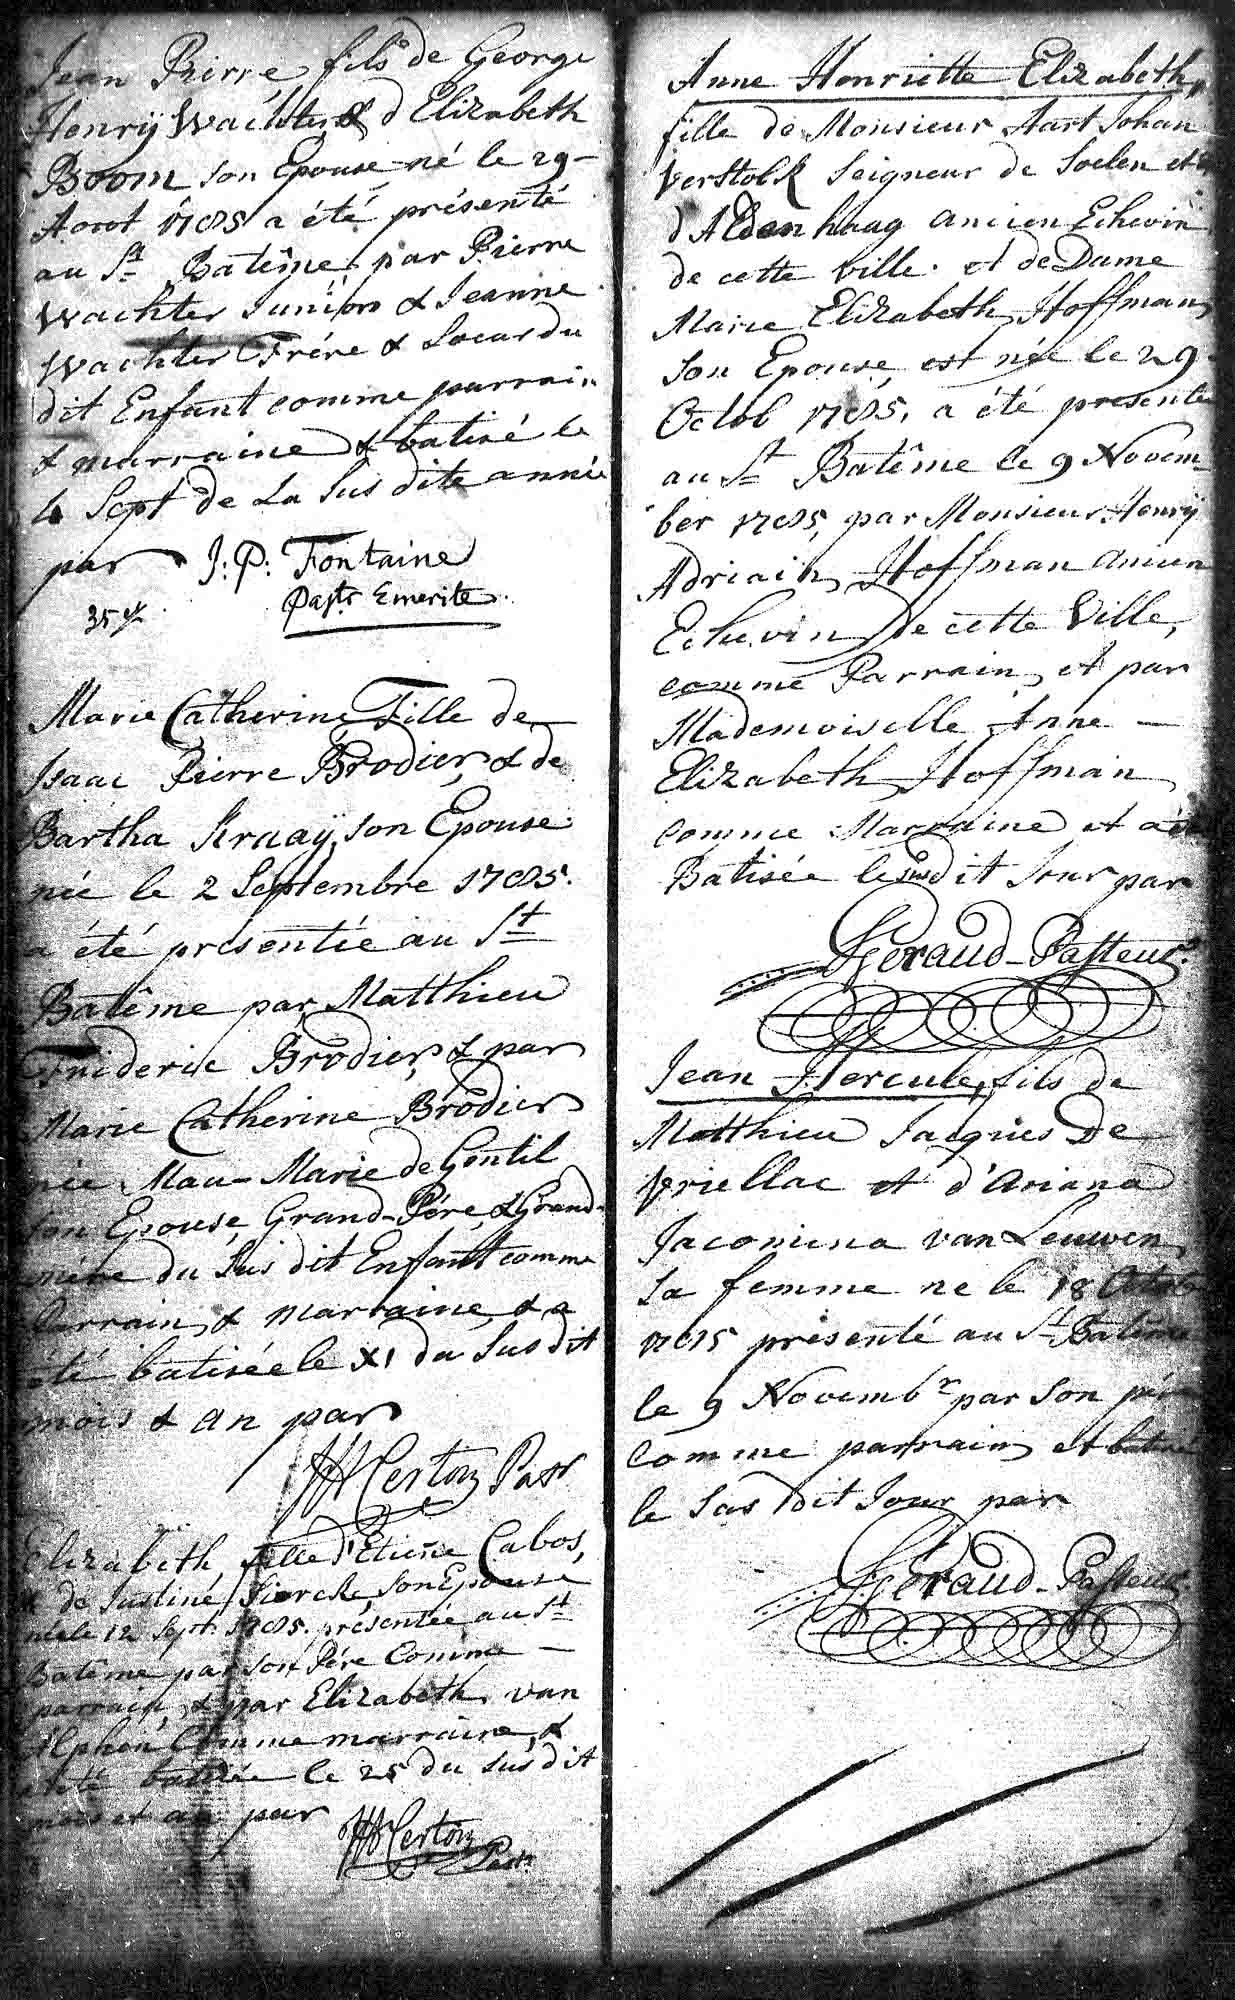 Jean Pierre, fils de George
Henrÿ Wachter & d'Elizabeth
Boom son Epouse né le 29
Aout 1785 a été présenté
au St. Batême par Pierre
Wachter Junior & Jeanne
Wachter Frére & Soeur du
dit Enfant comme parrain
& marraine & batisé le
4 Sept de la sus dite année
par J: P: Fontaine
Pastr Emerite
Marie Catherine Fille de
Isaac Pierre Brodier, & de
Bartha Kraaÿ, son Epouse
née le 2 Septembre 1785.
a été présentée au St
Batême par Matthieu
Frideric Brodier, & par
Marie Catherine Brodier
née Mau-Marie de Gentil
son Epouse, Grand-Pére, & Grand-
mére du sus dit Enfant comme
Parrain, & marraine, & a
été batisée le XI du sus dit
mois & an par
Certon Past
Elizabeth, fille d'Etiene Cabos,
& de Justine Sierck, son Epouse
née le 12 Sept. 1785. présentée au St
Batême par son Pére Comme
parrain, & par Elizabeth van
Alphen Comme marraine, &
a été batisée le 25 du sus dit
mois et an par
Certon
Pastr
Anne Henriette Elizabeth,
fille de Monsieur Aart Johan
Verstolk Seigneur de Soelen et
d'Aldenhaag ancien Echevin
de cette Ville. et de Dame
Marie Elizabeth Hoffman,
son Epouse, est née le 29
Octob 1785, a été presentée
au St Batême le 9 Novem-
ber 1785, par Monsieur Henrÿ
Adriain Hoffman ancien
Echevin de cette Ville,
comme Parrain, et par
Mademoiselle Anne
Elizabeth Hoffman
comme Marraine et a été
Batisée le susdit Jour par
Geraud-Pasteur.
Jean Hercule, fils de
Matthieu Jacques De
Vriellac et d'Ariana
Jacomina van Leuwen
sa femme ne le 18 Octob
1785 présenté au St Batême
le 9 Novembr par son pére
comme parrain et batisé
le sus dit Jour par
Geraud-Pasteur.